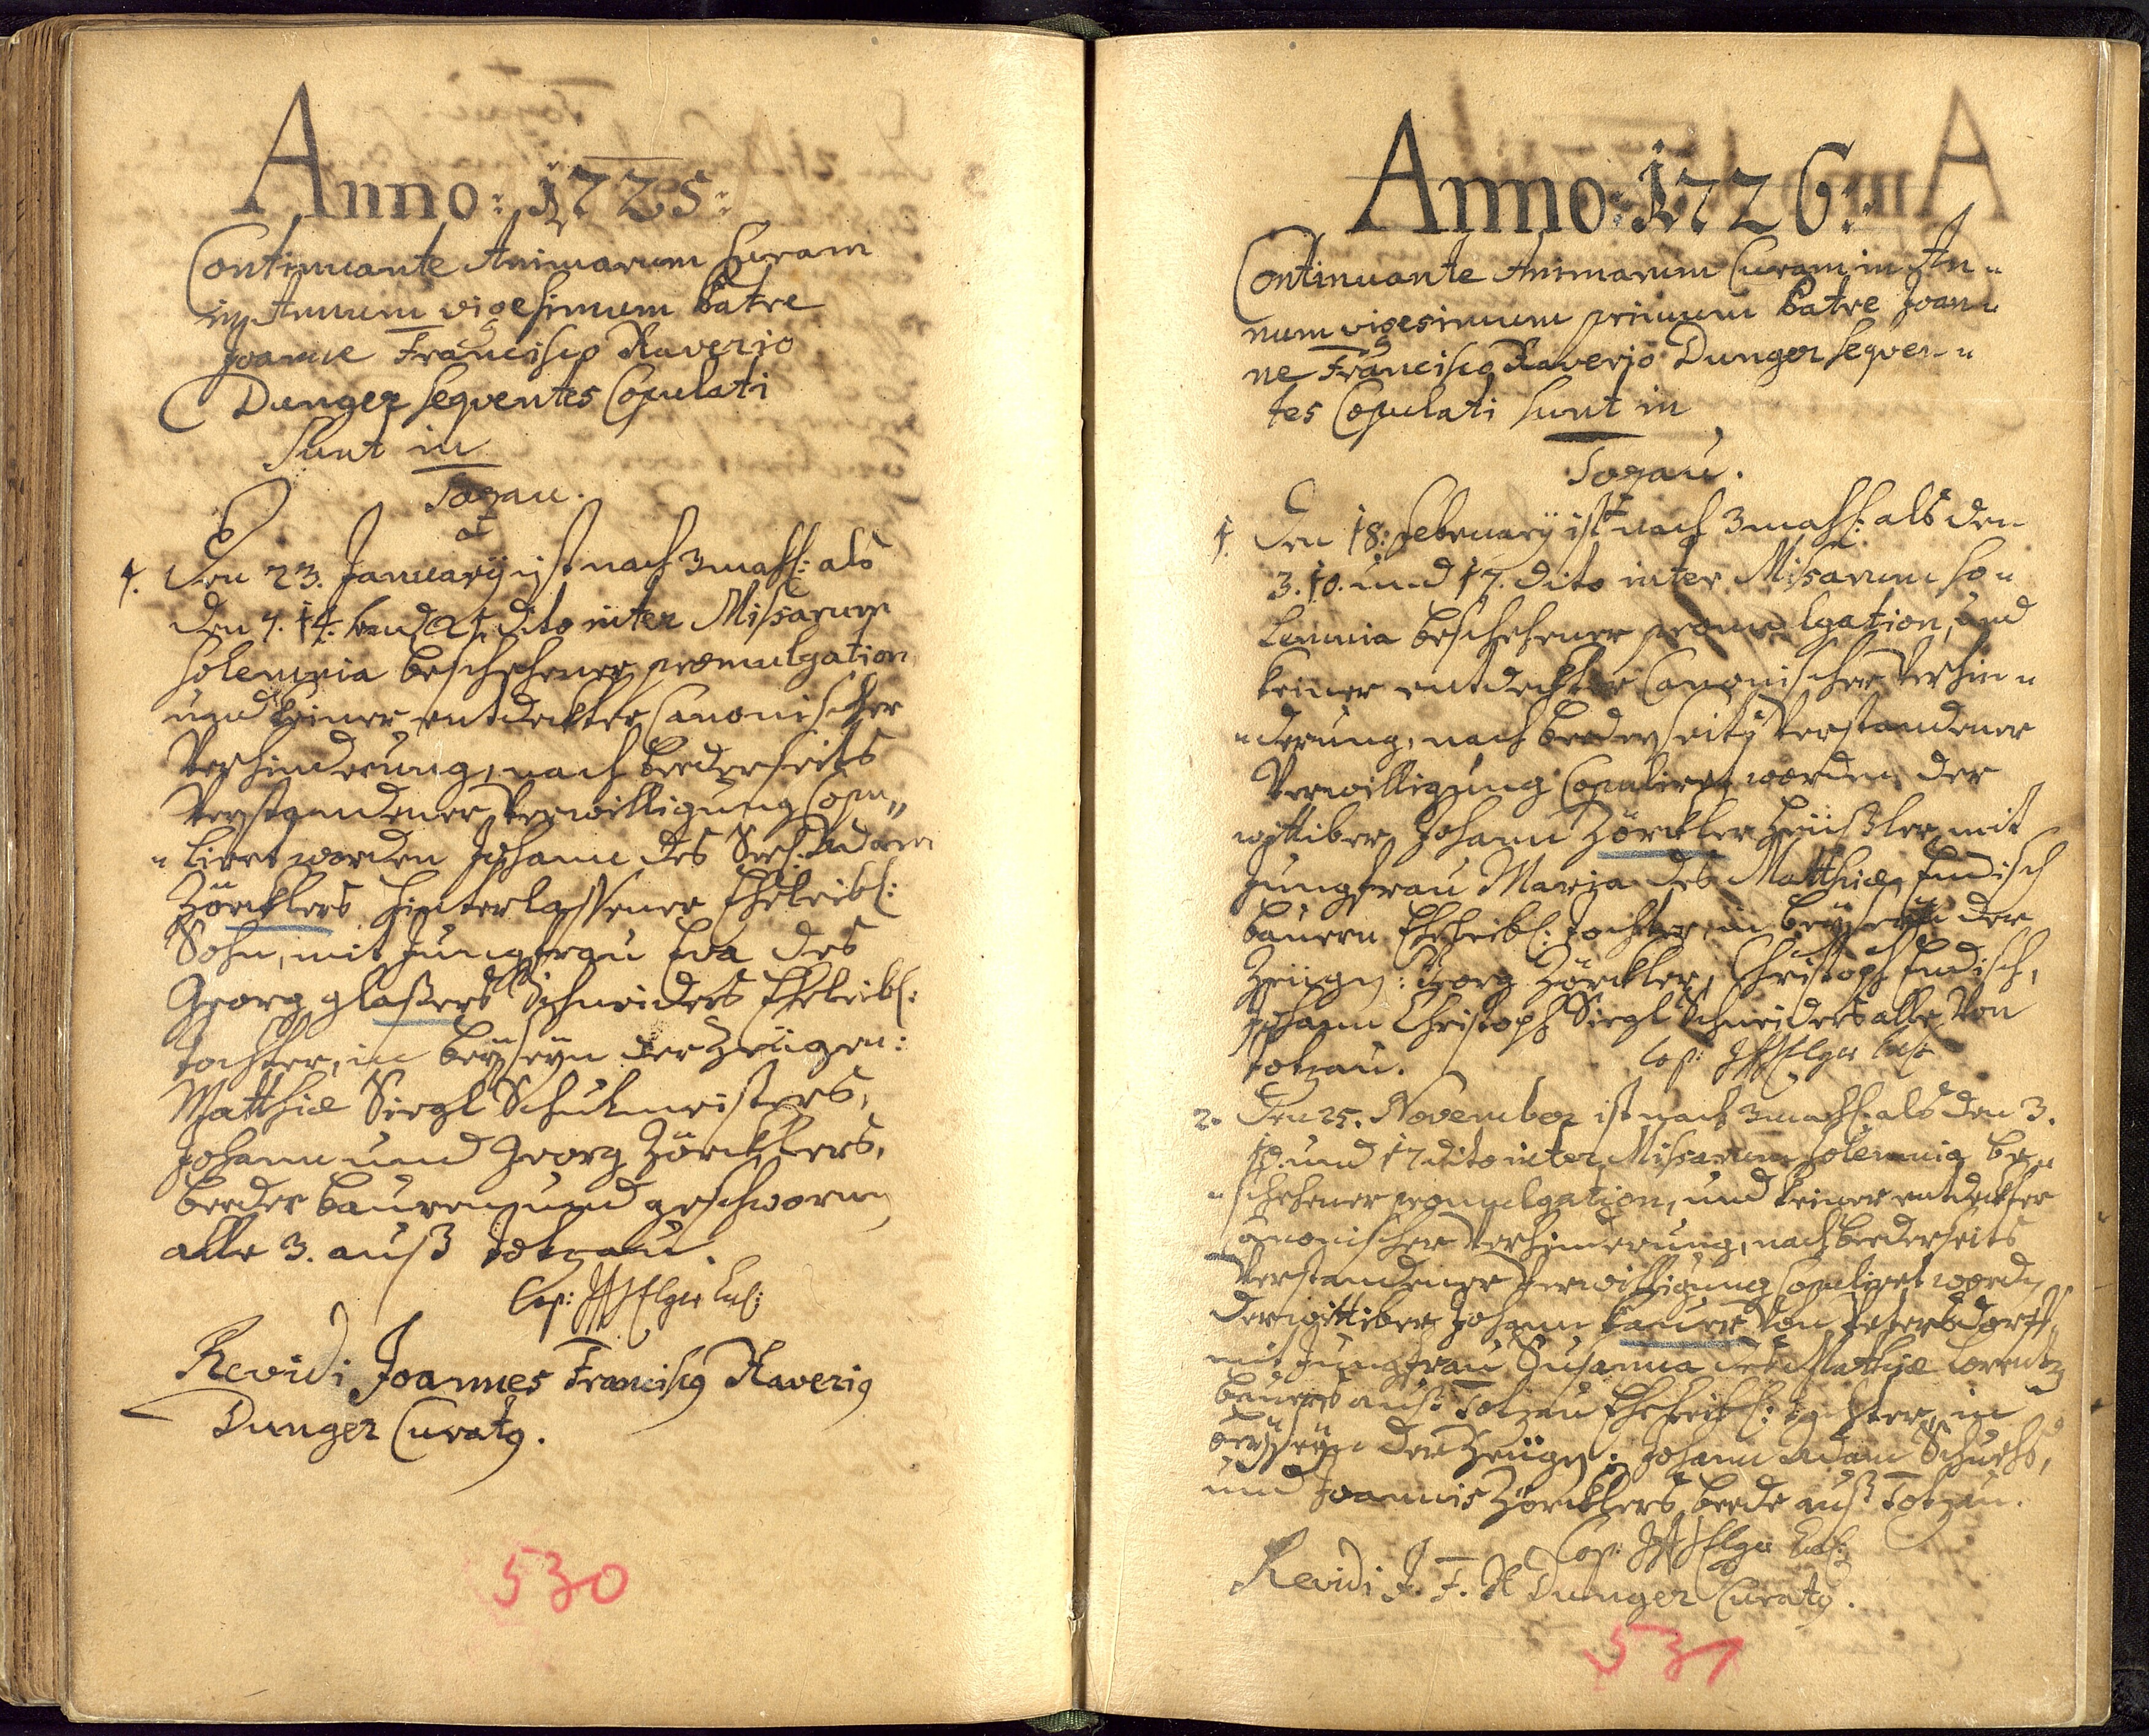 Anno: 1725:
Continuante Animarum Curam
in Annum vigesimum Patre
Joanne Francisco Xaverio
Dunger seqventes Copulati
Sunt in
Togau.
1. Den 23. January ist nach 3mahl: als
den 7. 14. und 21. dito inter Missarum
solemnia beschehener promulgation
und keiner entdeckter Canonischer
Verhinderung, nach beederseits
Verstandener Verwilligung Copu„
„liert worden Johann des Seel: Adam
Zörcklers hinterlassener Eheleibl:
Sohn, mit Jungfrau Eva des
Georg glaßers Schneiders Eheleibl:
tochter, in beÿseÿn der Zeügen:
Matthiæ Siegl Schulmeisters,
Johann und Georg Zörcklers,
beeder bauren und geschworne
alle 3. auß totzau.
Cop:
Revidi Joannes Franciscq Xaveriq
Dunger Curatq.
530
Anno: 1726:
Continuante Animarum Curam in An„
num vigesimum primum Patre Joan„
ne Francisco Xaverio Dunger seqven„
tes Copulati sunt in
Togau.
1. Den 18: February ist nach 3mahl: als den
3. 10. und 17. dito inter Misarum so„
lemnia beschehener promulgation, und
keiner entdeckter Canonischer Verhin„
„derung, nach beederseits Verstandener
Verwilligung Copuliert worden der
wittiber Johann Zörckler Häüßler mit
Jungfrau Maria des Matthiæ Endisch
bauern Eheleibl: tochter, in beÿseÿn der
Zeügen: Georg Zörckler, Christoph Endisch,
Johann Christoph Siegl Schneiders alle Von
totzau. Cop:
2. Den 25. November ist nach 3mahl: als den 3.
10. und 17 dito inter Missarum solemnia be„
„schehener promulgation, und keiner entdeckter
Canonischer Verhinderung, nach beederseits
Verstandener Verwilligung Copuliert worden
der wittiber Johann bauer Von Petersdorff,
mit Jungfrau Susanna des Mathiæ Lorentz
bauers auß Totzau Eheleibl: tochter, in
beÿseÿn der Zeügen: Johann Adam Schuchs,
und Joannis Zörcklers beede auß Totzau.
Cop:
Revidi J. F. X Dunger Curatq.
531